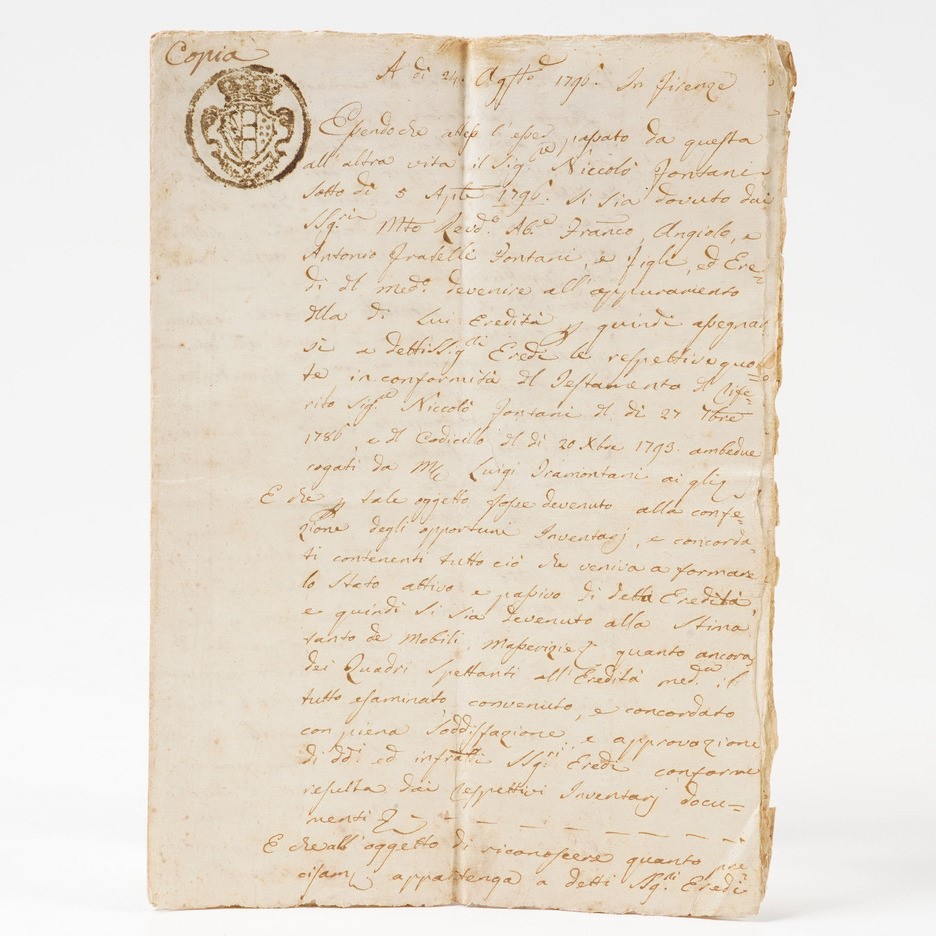 Copia
A dì 24. Agsto 1796. In Firenze
Essendo che attesso l'esser passato da questa
all'altra vita il Sigre Niccolò Fontani
sotto dì 5 Aple 1796. si sia dovuto dai
SSgri Mto Revdo. Abe Franco, Angiolo, e
Antonio fratelli Fontani, e figli, ed Ere=
di dl medo. devenire all'appuramento
dlla di Lui Eredità p quindi assegnar
si a detti SSigri Eredi le respettive quo=
te in conformità dl Testamento dl rife=
rito Sigre Niccolò Fontani dl dì 27 7bre
1786, e dl Codicillo dl dì 20 Xbre 1793. ambedue
rogati da Mr Luigi Tramontani ai qli
E che p tale oggetto fosse devenuto alla confe=
zione degli opportuni Inventarj, e concorda=
ti contenenti tutto ciò che veniva a formare
lo Stato attivo e passivo di detta Eredità,
e quindi si sia devenuto alla Stima
tanto de Mobili, Masserizie quanto ancora
dei Quadri Spettanti all'Eredità medma il
tutto esaminato, convenuto, e concordato
con piena soddisfazione, e approvazione
di ddi ed infratti SSgri Eredi conforme
resulta dai respettivi Inventarj docu=
menti
E che all'oggetto di riconoscere quanto pre
cisam appartenga a detti SSgri Eredi